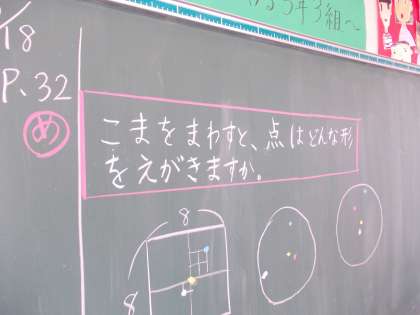 3年3組へ
/18
P.32
め
こまをまわすと、点はどんな形
をえがきますか。
8
8